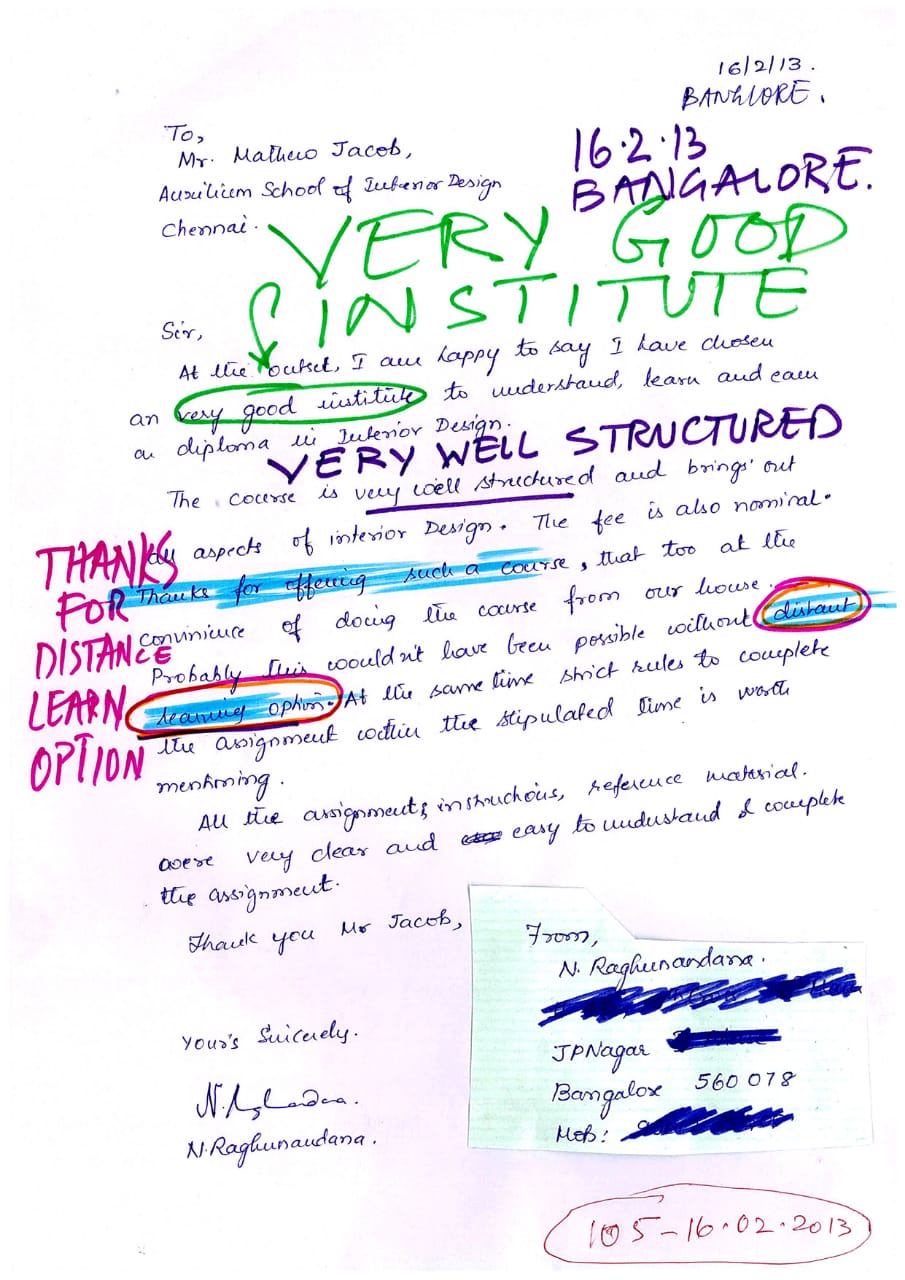 16/2/13.
BANGLORE.
To,
Mr. Mathew Jacob,
Auxilium School of Interior Design
Chennai.
16.2.13
BANGALORE.
VERY GOOD
INSTITUTE
Sir,
At the outset, I am happy to say I have chosen
an very good institute to understand, learn and earn
a diploma in Interior Design.
VERY WELL STRUCTURED
The course is very well structured and brings out
all aspects of interior Design. The fee is also nominal.
Thanks for offering such a course, that too at the
convinience of doing the course from our house.
Probably this wouldn't have been possible without distant
learning option. At the same time strict rules to complete
the assignment within the stipulated time is worth
mentioning.
THANKS
FOR
DISTANCE
LEARN
OPTION
All the assignments, instructions, reference material.
were very clear and easy to understand & complete
the assignment.
Thank you Mr Jacob,
Your's Sincerely.
N.Raghunandana.
From,
N. Raghunandana.
JPNagar
Bangalore 560 078
Mob:
105-16.02.2013